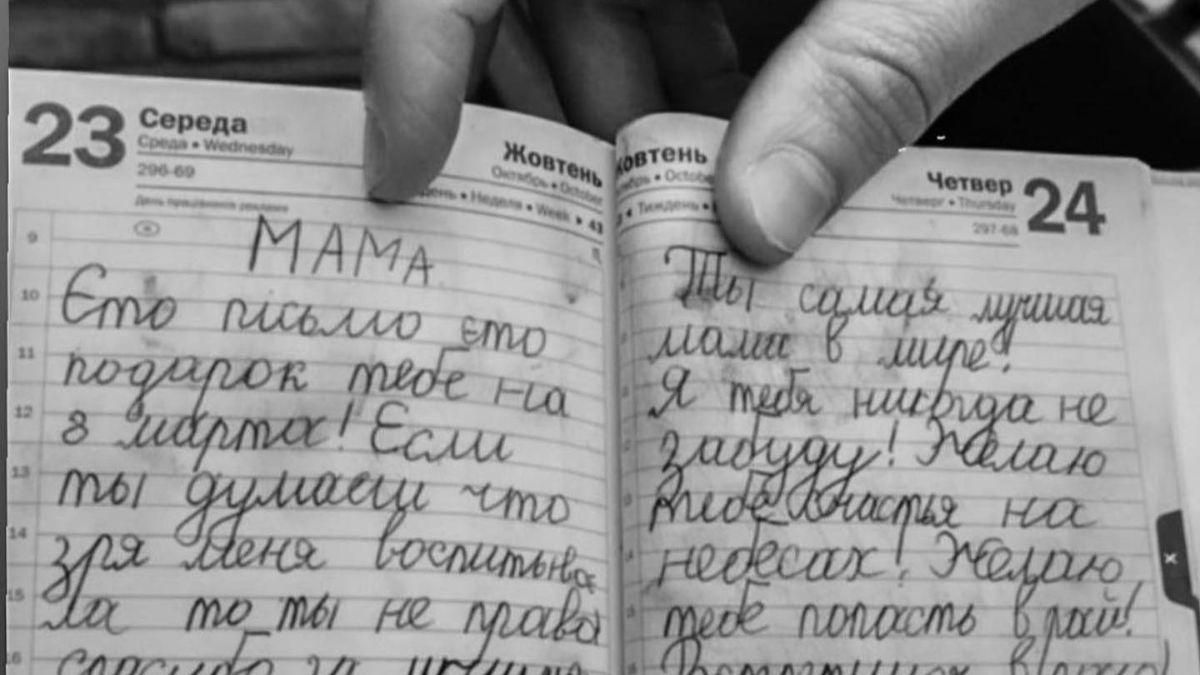 23
Середа
Среда • Wednesday
296-69
Жовтень
Октябрь • October
День • Неделя • Week ▸ 43
9
МАМА
10
Єто письмо єто
11
подарок тебе на
12
8 марта! Єсли
13
ты думаеш что
14
зря меня воспитыва
15
ла то ты не права
16
спасибо за
Четвер
Четверг • Thursday
24
297-68
Жовтень
October
Тиждень •
Ты самая лучшая
мама в мире!
Я тебя никогда не
забуду! Желаю
тебе счастья на
небесах! Желаю
тебе попасть в рай!